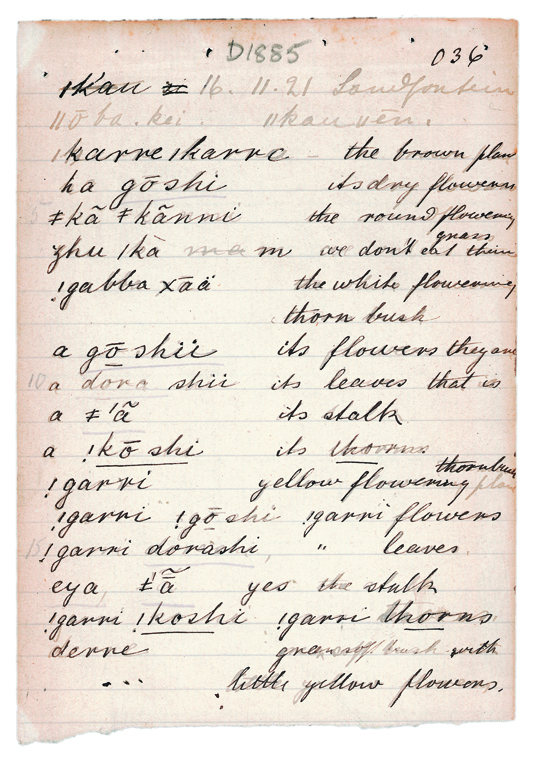 D1885 036
ǀk'au 16. 11. 21 Sandfontein
ǁō ba. kei. ǁkau vēn.
ǀkarre ǀkarre – the brown plan
ha gōshi its dry flowers
5 ǂkã ǂkãnni the round flowering
grass
zhu ǀkà ma m we don't eat them
!gabba xāä the white flowering
thorn bush
a gō shii its flowers they are
10 a dora shii its leaves that is
a ǂ'ã its stalk
a !kō shi its thorns
thornbush
!garri yellow flowering plan
!garri !gō shi !garri flowers
15 !garri dorashi, " leaves
eya, ǂ'ã yes the stalk
!garri !koshi !garri thorns
derre soft bush with
... little yellow flowers.